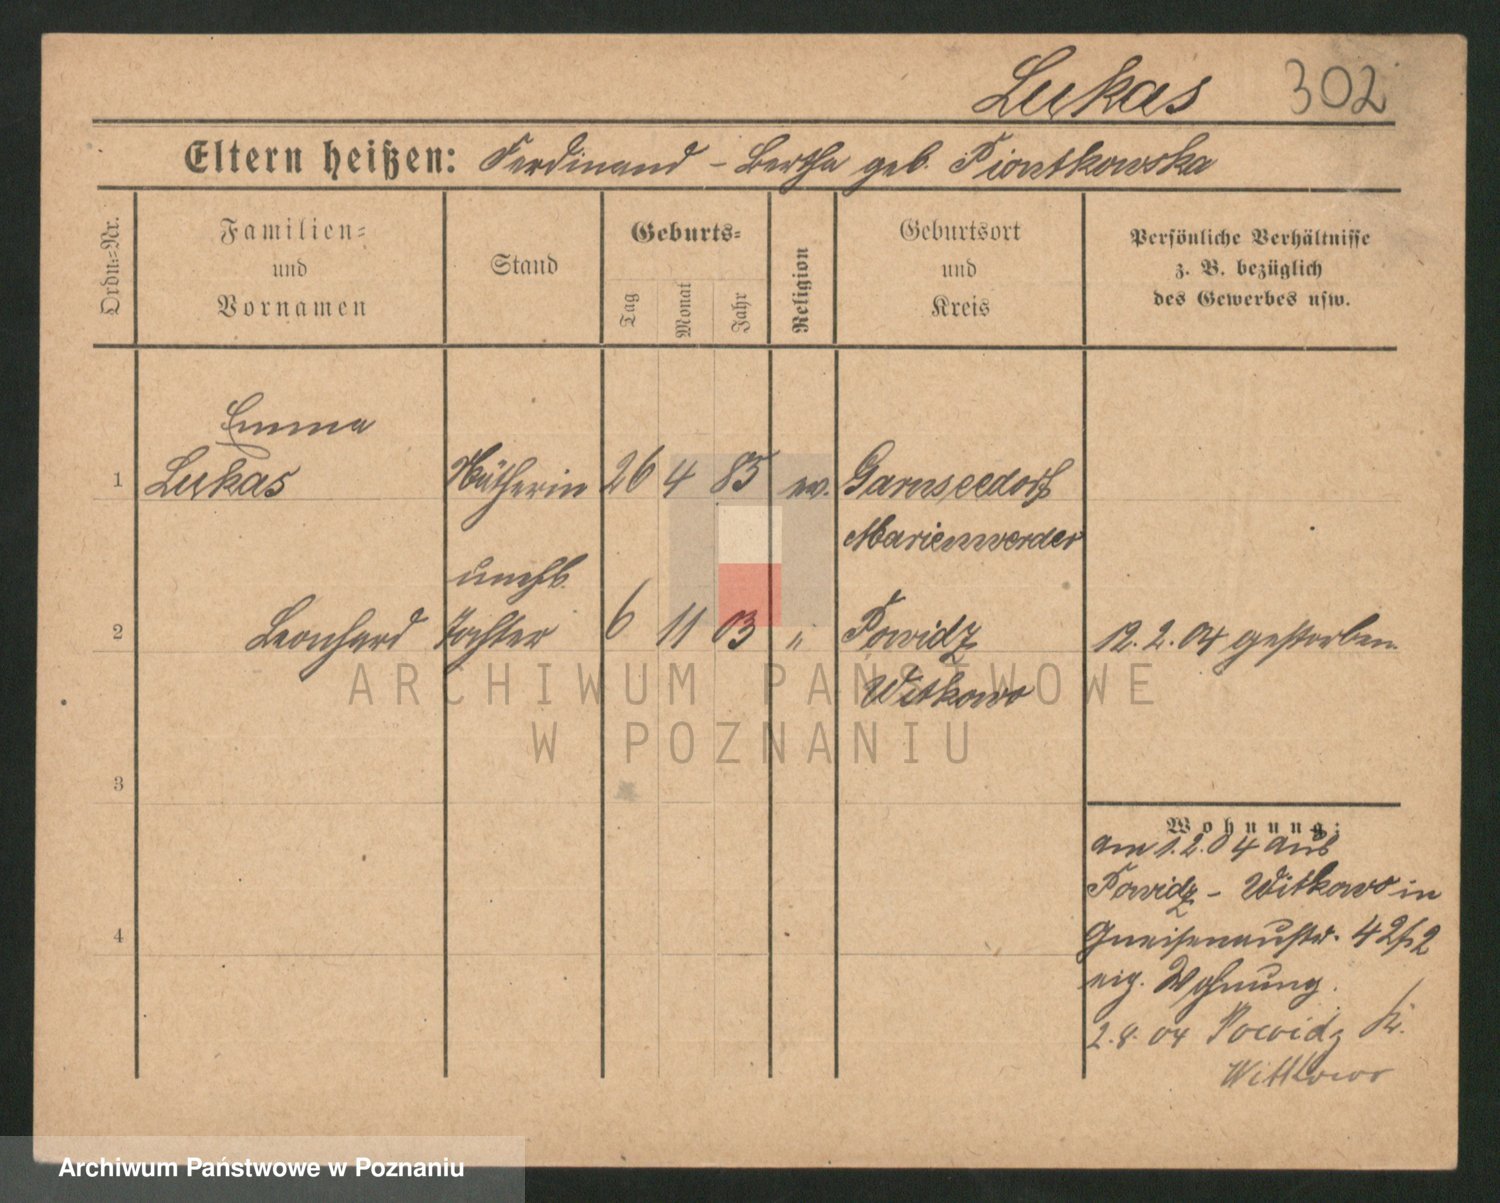 Lukas 302
Eltern heißen: Ferdinand - Bertha geb. Piontkowska
Ordn.=Nr.
Familien=
und
Vornamen
Stand
Geburts=
Tag
Monat
Jahr
Religion
Geburtsort
und
Kreis
Persönliche Verhältnisse
z. B. bezüglich
des Gewerbes usw.
Emma
1 Lukas Nätherin 26 4 85 ev. Garnseedorf
Marienwerder
unehl.
2 Leonhard Tochter 6 11 03 " Powidz 12.2.04 gestorben.
Witkowo
ARCHIWUM PAŃSTWOWE
W POZNANIU
3
Wohnung:
am 1.2.04 aus
Powidz - Witkowo in
4 Gneisenaustr. 42
eig. Wohnung.
2.8.04 Powidz Kr.
Wittkowo
Archiwum Państwowe w Poznaniu